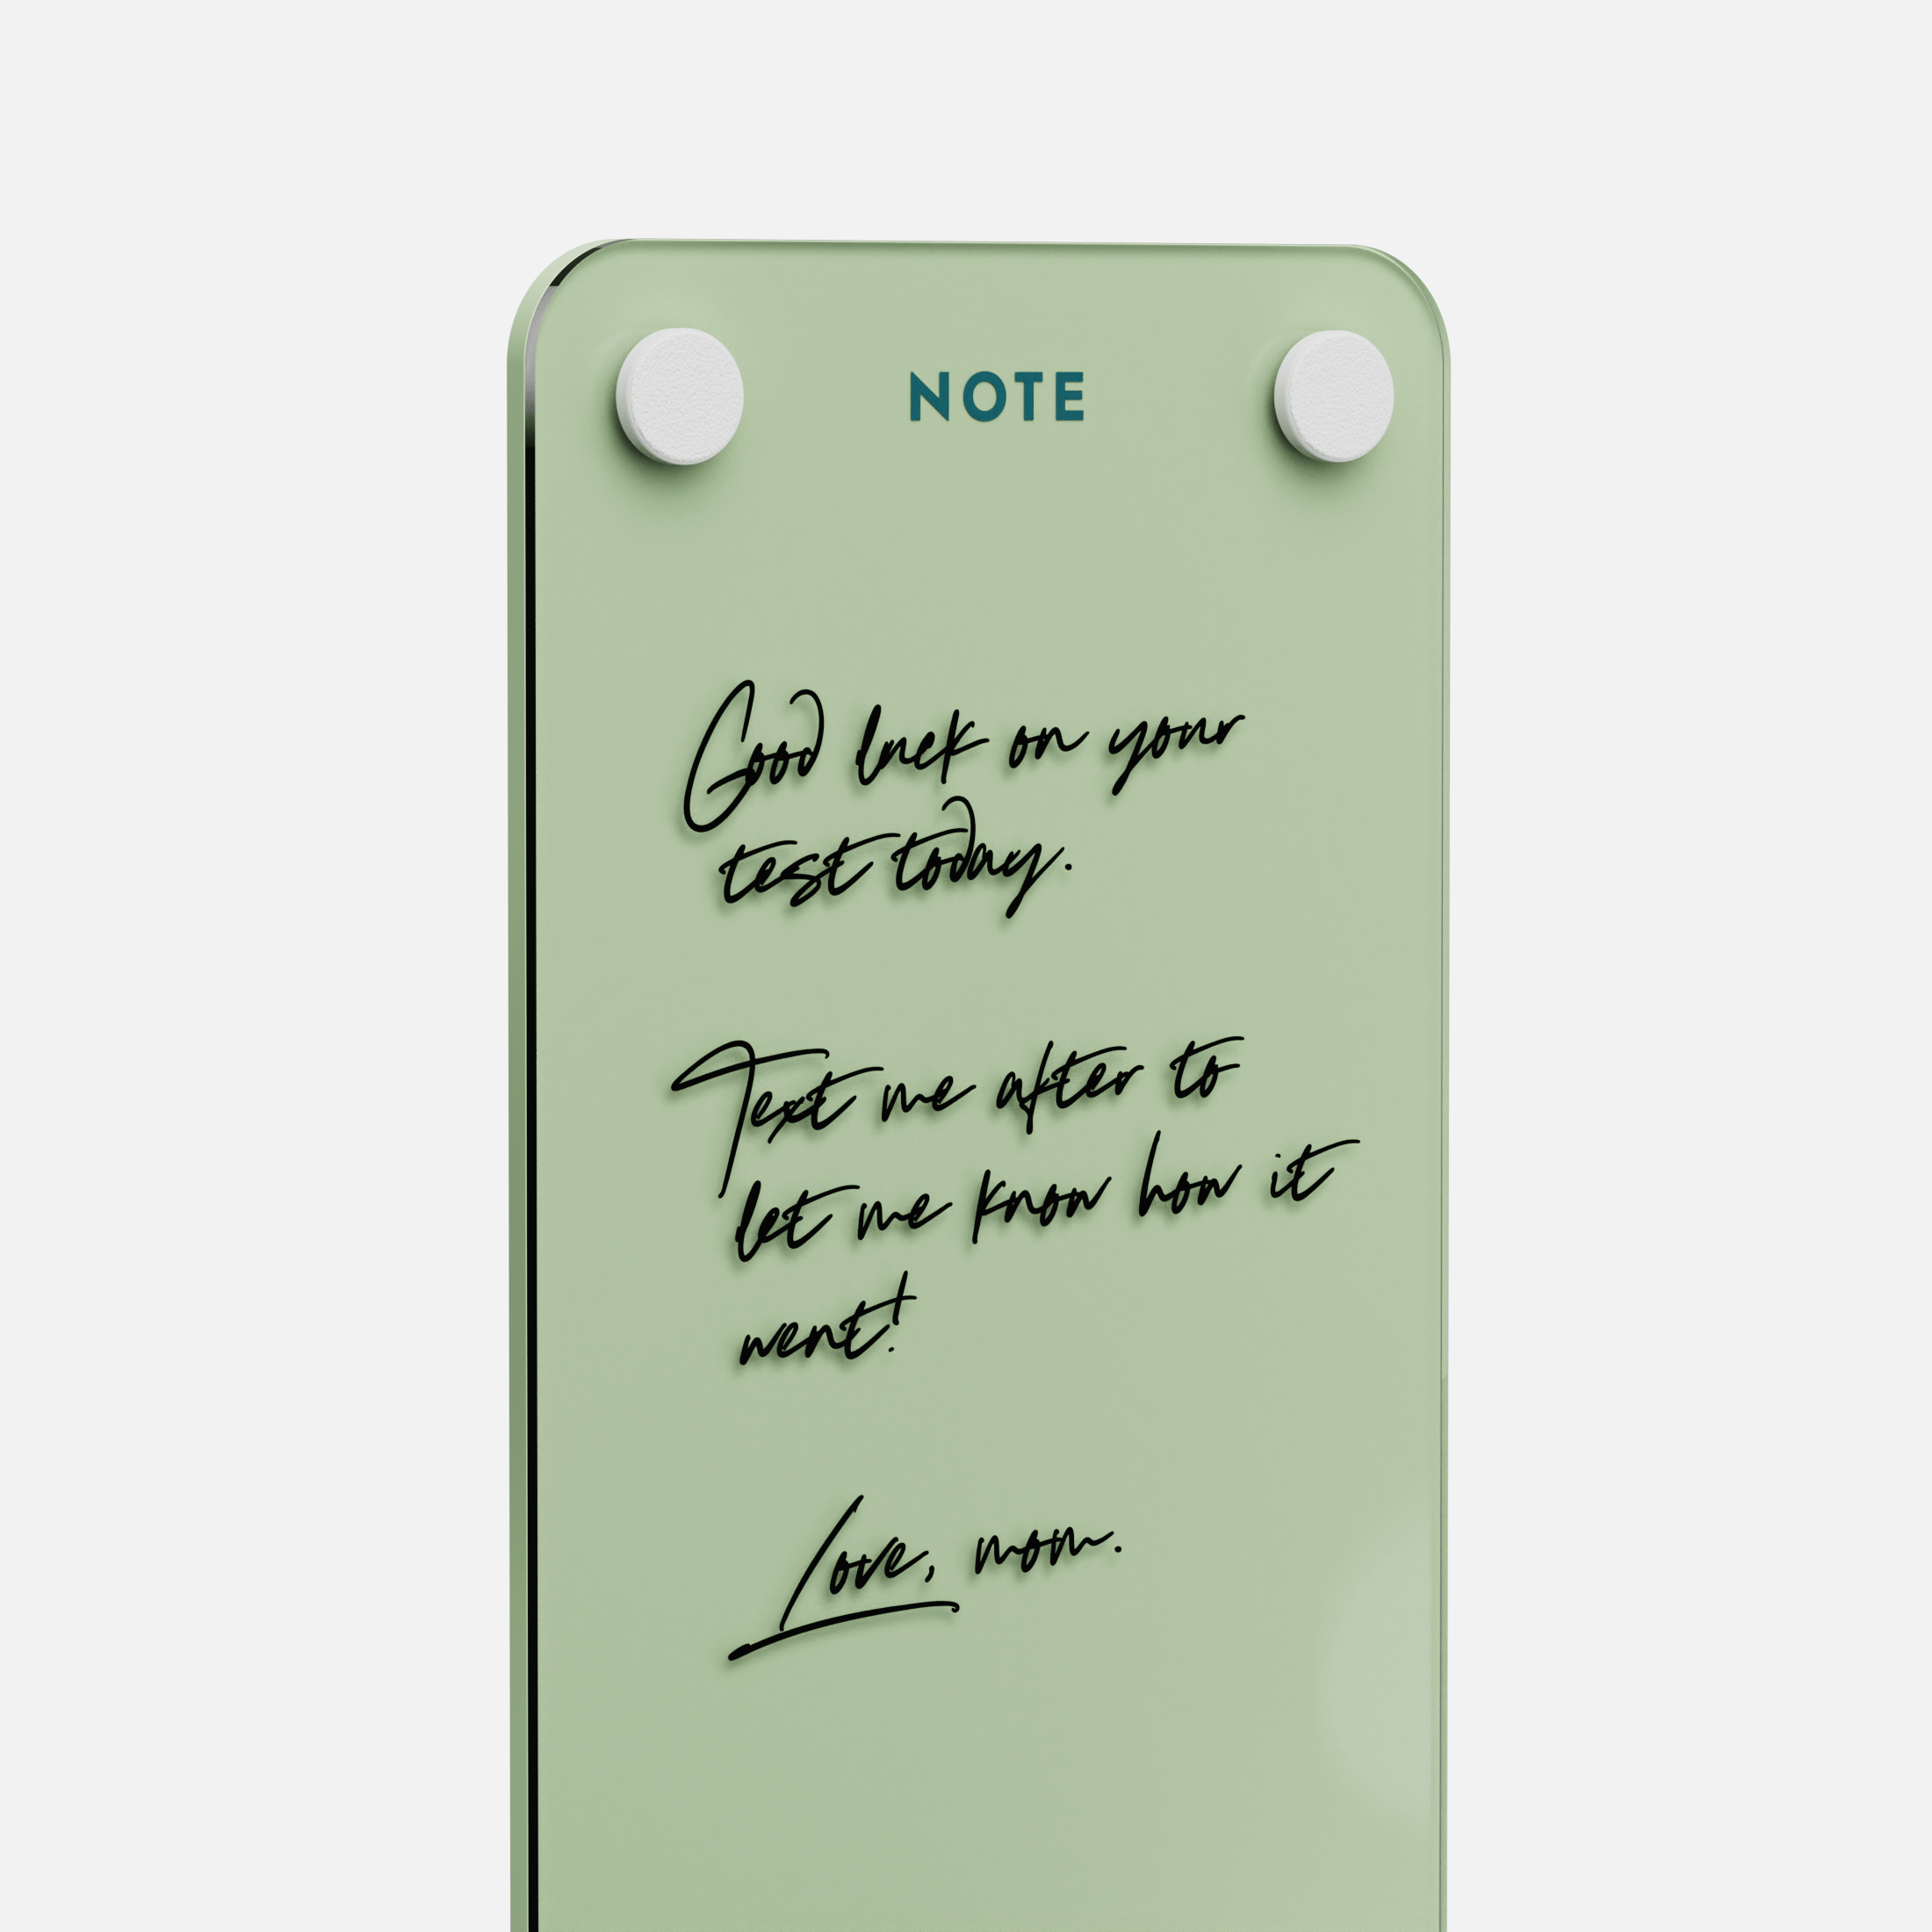 NOTE
Good luck on your
test today.
Text me after to
let me know how it
went!
Love, mom.